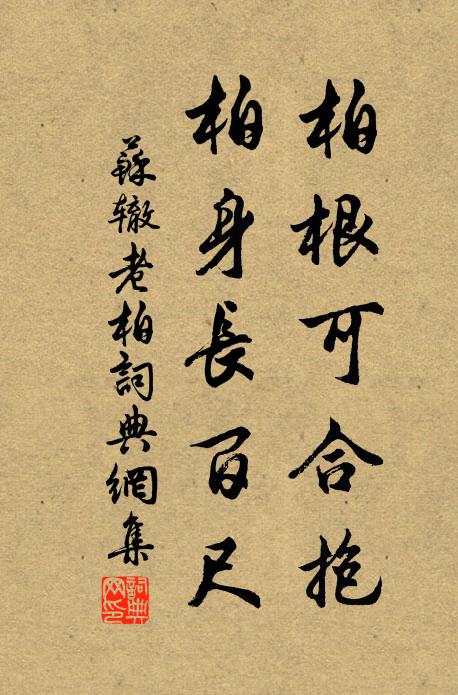 柏根可合抱
柏身長百尺
蘇辙老柏詞典網集
詞典网印